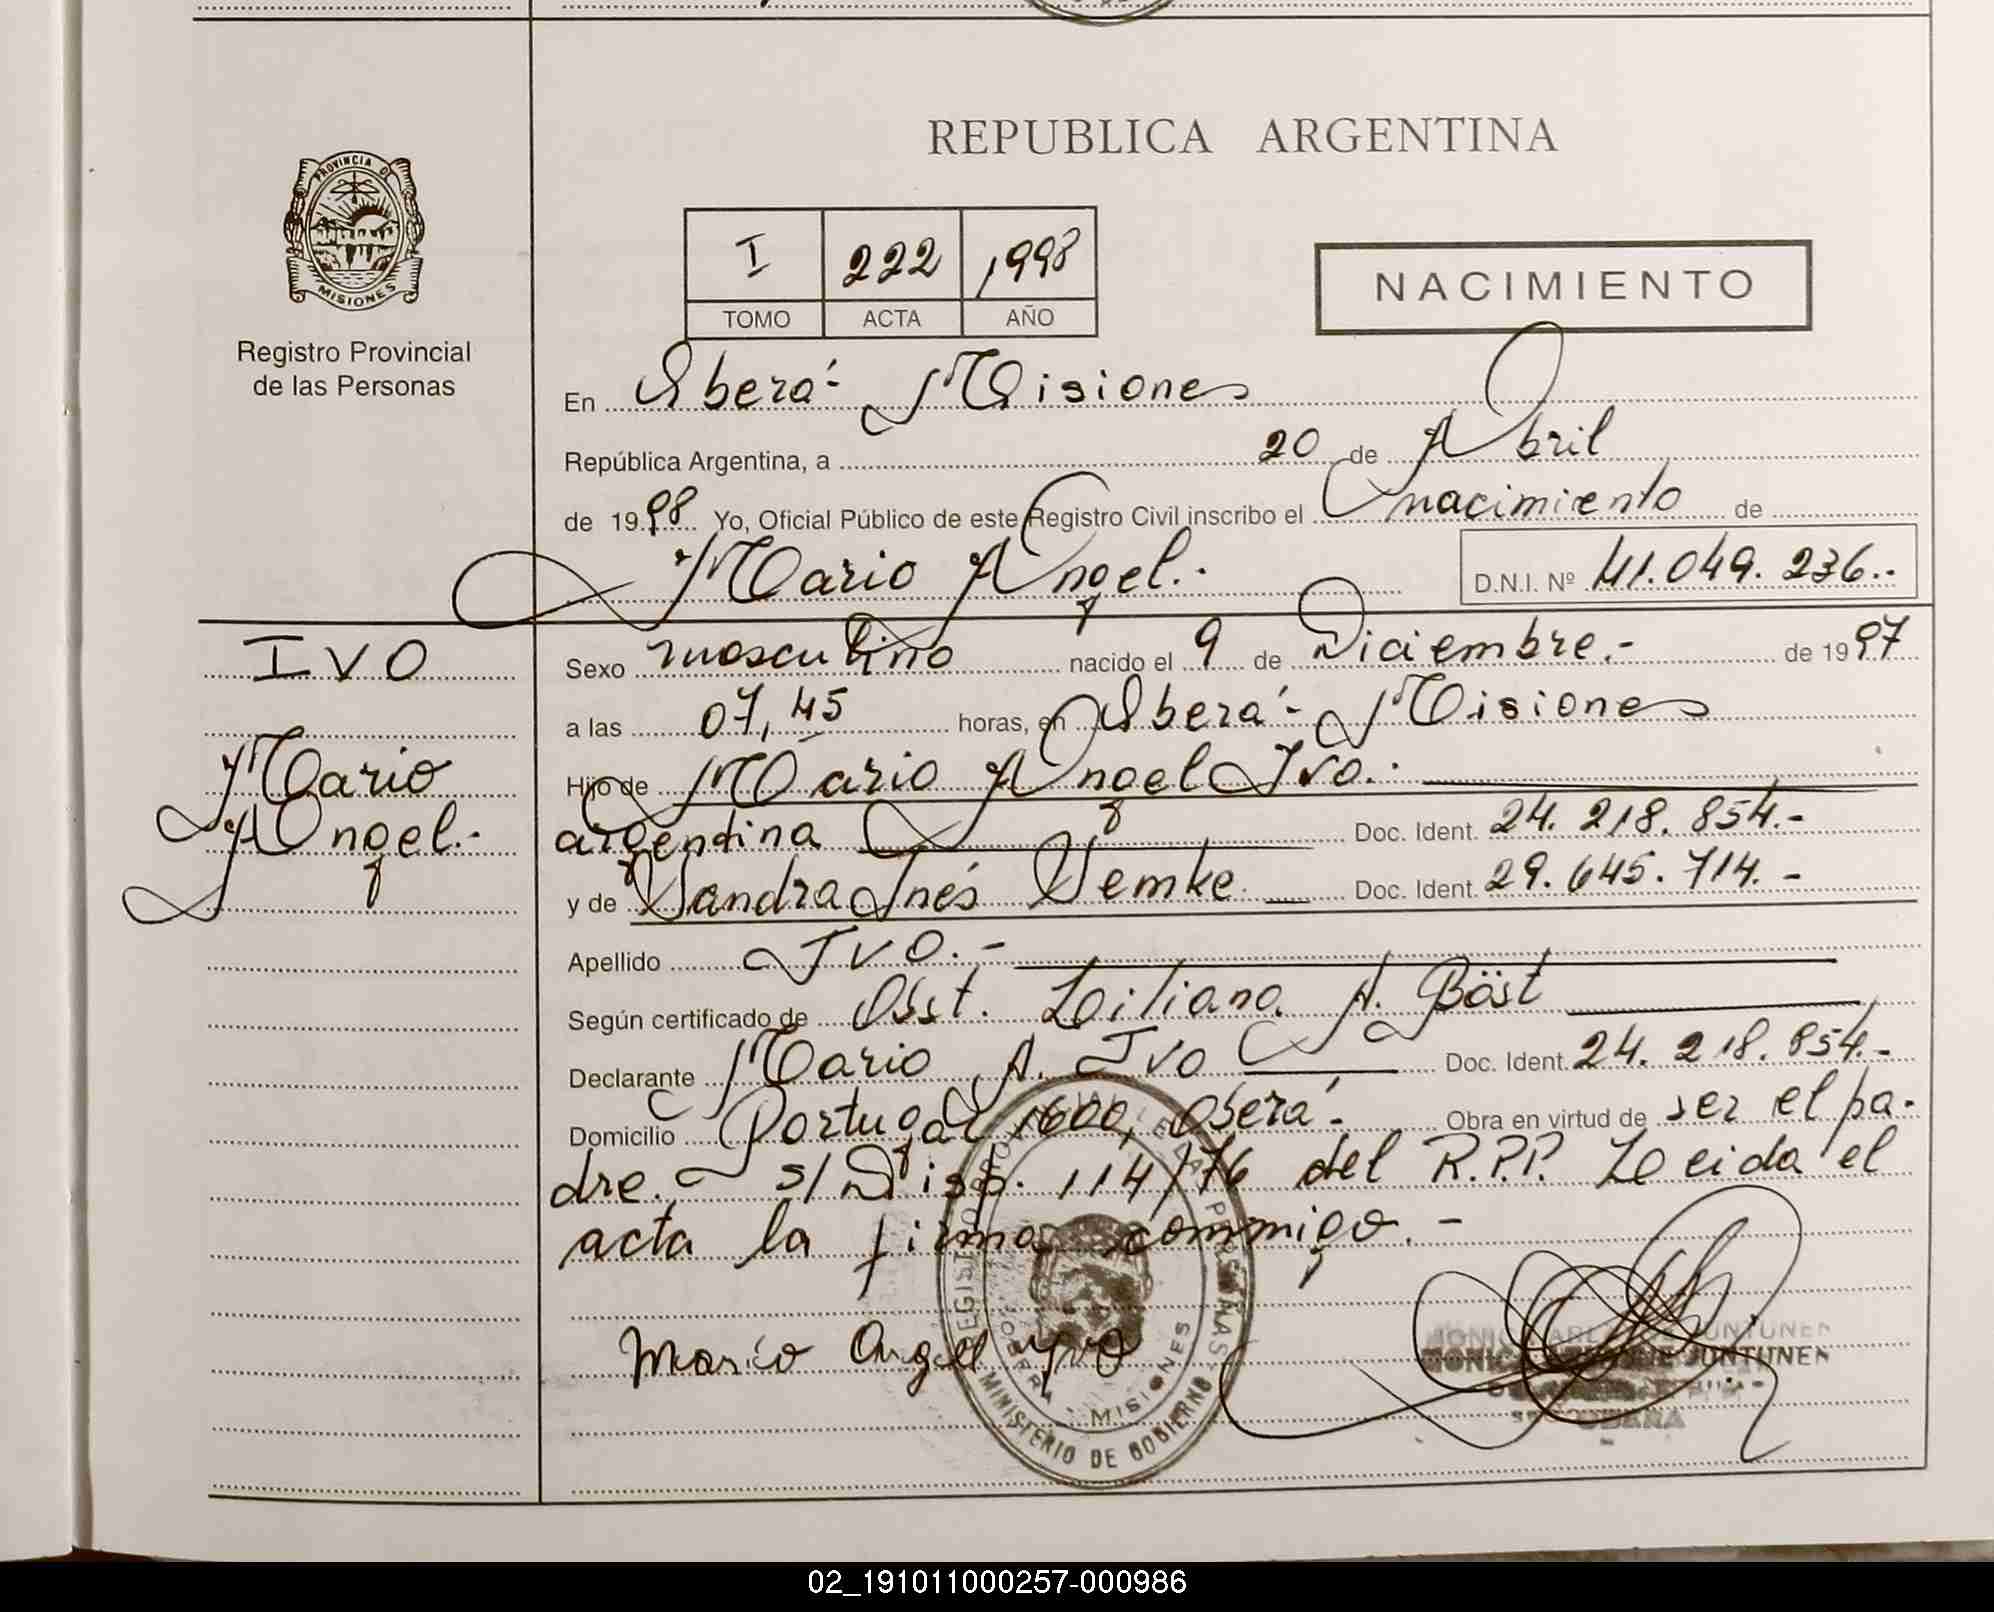 REPUBLICA ARGENTINA
PROVINCIA DE
MISIONES
Registro Provincial
de las Personas
I 222 1998
TOMO ACTA AÑO
NACIMIENTO
En Oberá- Misiones
República Argentina, a 20 de Abril
de 1998 Yo, Oficial Público de este Registro Civil inscribo el nacimiento de
Mario Angel.- D.N.I. Nº 41.049.236.-
IVO
Mario
Angel.-
Sexo masculino nacido el 9 de Diciembre.- de 1997
a las 07,45 horas, en Oberá- Misiones
Hijo de Mario Angel Ivo.-
argentina Doc. Ident. 24.218.854.-
y de Sandra Inés Semke. Doc. Ident. 29.645.714.-
Apellido Ivo.-
Según certificado de Obst. Liliana A. Böst
Declarante Mario A. Ivo Doc. Ident. 24.218.854.-
Domicilio Portugal 1600, Oberá.- Obra en virtud de ser el pa-
dre.- s/ Disp. 114/76 del R.P.P. Leida el
acta la firma commigo.-
Mario Angel Yvo
MINISTERIO DE GOBIERNO
OBERA - MISIONES
JUNTUNEN
OBERA
02_191011000257-000986